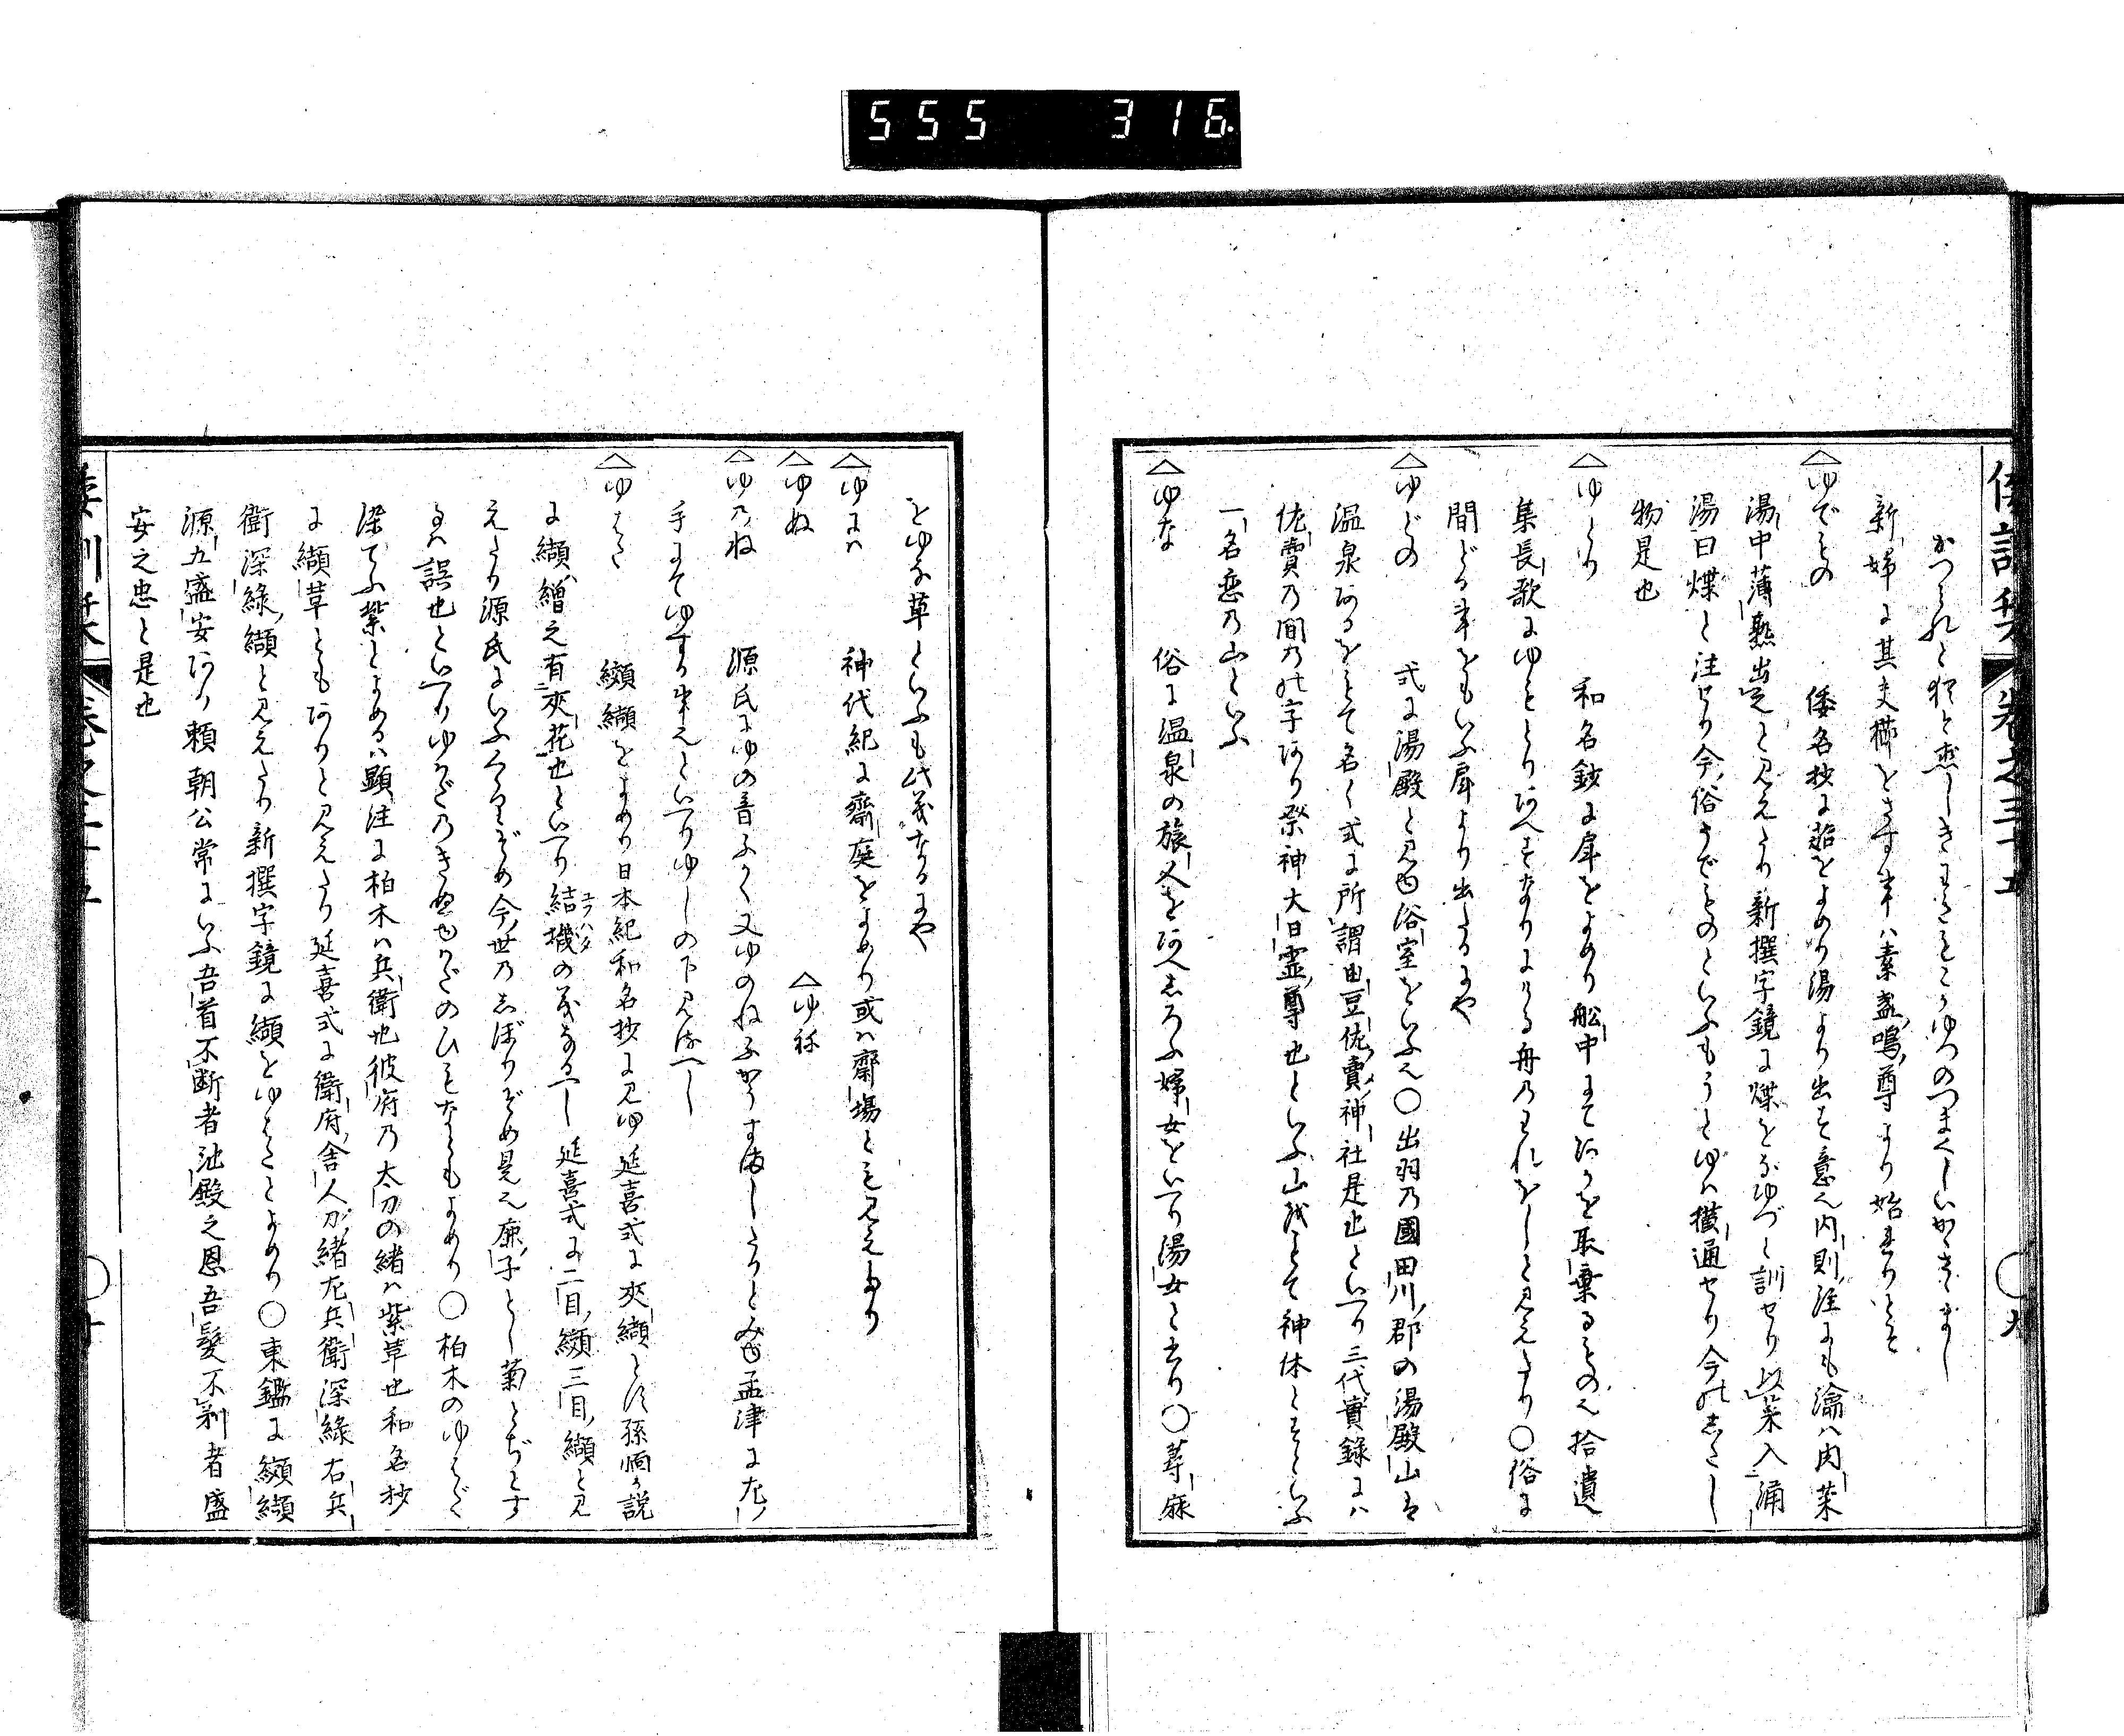 555 316
倭訓栞 卷之三十五 九
かつられと猶も恋しきわきもこかゆつのつまくしいかゝさまし
新婦に其夫櫛をさす事ハ素盞嗚尊より始まりとそ
△ゆでもの 倭名抄に茹をよめり湯より出る意也内則注にも瀹ハ肉菜
湯中薄熟出之と見えたり新撰字鏡に煠をなゆづと訓せり以菜入涌
湯曰煠と注せり今俗うでものといふもうとゆハ横通せり今のしたし
物是也
△ゆとり 和名鈔に戽をよめり舩中にてあかを取棄るもの也拾遺
集長歌にゆとり あへすなりにける舟のわれをしと見えたり○俗に
間どる事をもいふ戽より出たるにや
△ゆどの 式に湯殿と見ゆ浴室をいふ也○出羽乃國田川郡の湯殿山は
温泉あるをもて名く式に所謂由豆佐賣神社是也といへり三代實錄にハ
佐賣の間の字あり祭神大日霊尊也といふ山伐もて神体とすといふ
一名恋の山といふ
△ゆな 俗に温泉の旅人をあへしらふ婦女をいへり湯女と書り○蕁麻
をゆな草といふも此義なるにや
△ゆには 神代紀に齋庭をよめり或ハ齋場とも見えたり
△ゆぬ △ゆね
△ゆのね 源氏にゆの音ふかく又ゆのねふかうすましたりとみゆ孟津に左
手にてゆする事也といへりゆしの下見るへし
△ゆはた 纈纐をよめり日本紀和名抄に見ゆ延喜式に夾纈とす孫愐か説
に纈繒之有夾花也といへり結機の義なるへし延喜式に二目纈三目纈と見
えたり源氏にいふくゝりぞめ今世の志ぼりぞめ是也鹿子とし菊とぢとす
るハ誤也といへりゆはどのきぬゆはどのひもなともよめり○柏木のゆはど
染てふ紫とよめるハ顕注に柏木ハ兵衛也彼府乃太刀の緒ハ紫草也和名抄
に纈草ともありと見えたり延喜式に衛府舎人刀緒左兵衛深綠右兵
衛深綠纈と見えたり新撰字鏡に纈をゆはたとよめり○東鑑に纐纈
源五盛安あり頼朝公常にいふ吾首不断者池殿之恩吾髪不剃者盛
安之忠と是也
倭訓栞 卷之三十五 十